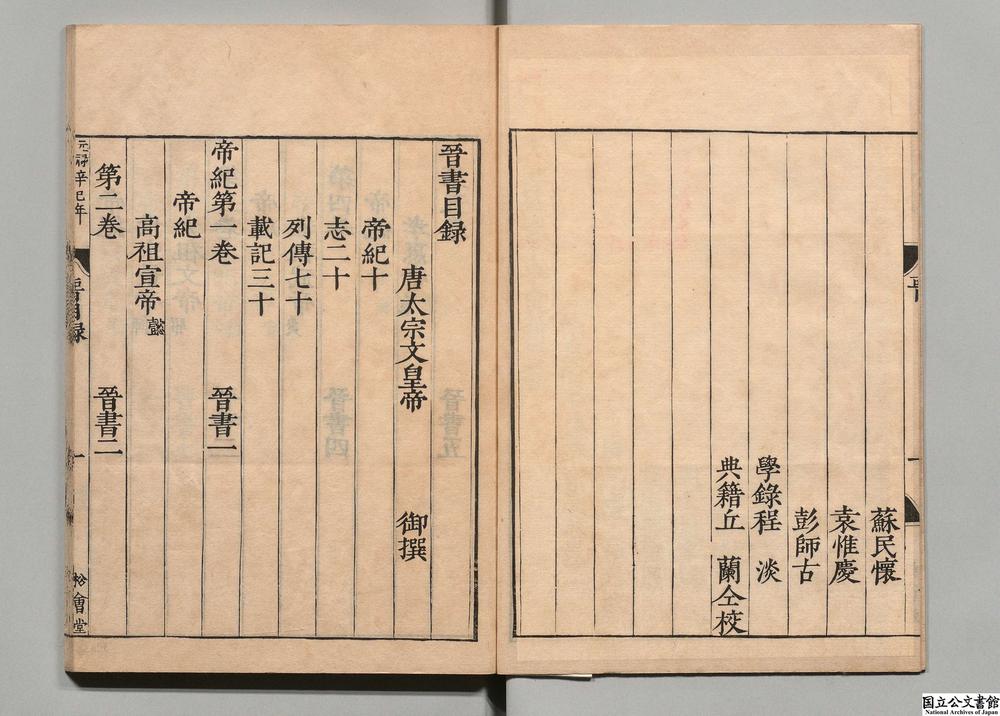 蘇民懷
袁惟慶
彭師古
學錄程 淡
典籍丘 蘭仝校
晉書目録
唐太宗文皇帝 御撰
帝紀十
志二十
列傳七十
載記三十
帝紀第一卷 晉書一
帝紀
高祖宣帝懿
第二卷 晉書二
元禄辛巳年
晉目録
一
松會堂
国立公文書館
National Archives of Japan